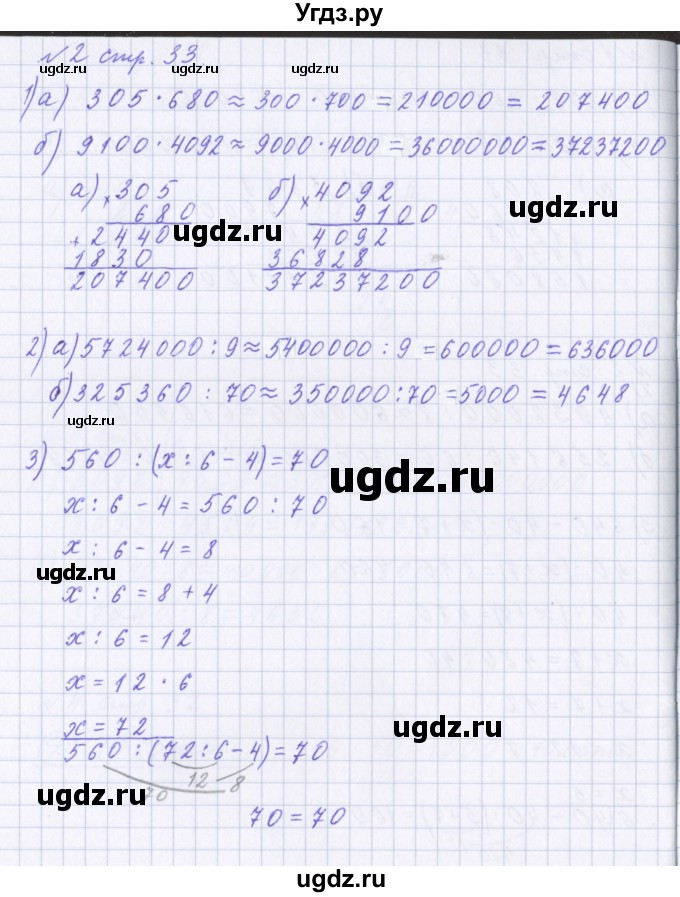 Угдз.ру
№2 стр. 33
ugdz.ru ugdz.ru
1)а) 305·680≈300·700=210000=207400
б) 9100·4092≈9000·4000=36000000=37237200
а) ×305 б) ×4092
680 9100
ugdz.ru ugdz.ru
+2440 4092
1830 36828
207400 37237200
2) а) 5724000:9≈5400000:9=600000=636000
б) 325360:70≈350000:70=5000=4648
ugdz.ru
3) 560:(x:6-4)=70
ugdz.ru
x:6-4=560:70
x:6-4=8
ugdz.ru
x:6=8+4
x:6=12
x=12·6
x=72
ugdz.ru
560:(72:6-4)=70
12 8
70
ugdz.ru ugdz.ru
70=70
ugdz.ru